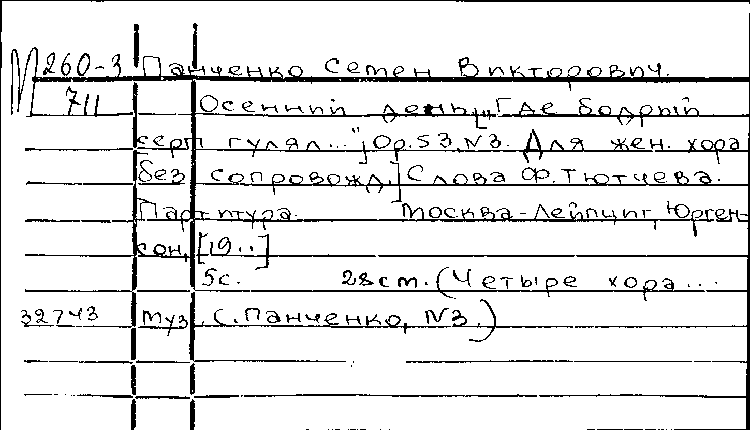 М 260-3 Панченко Семен Викторович.
711 Осенний день["Где бодрый
серп гулял..."] Op.53,№3. Для жен. хора
без сопровожд.] Слова Ф.Тютчева.
Партитура. Москва-Лейпциг, Юрген-
сон, [19..]
5с. 28cm. (Четыре хора...
32743 муз. С. Панченко, №3.)